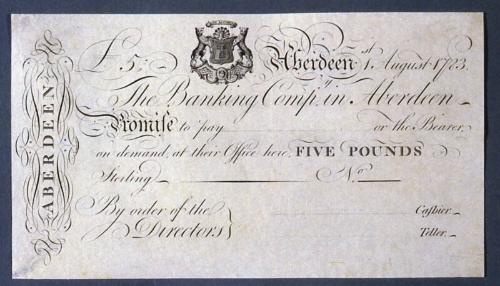 £5; Aberdeen 1st August 1783.
The Banking Compy. in Aberdeen
Promise to pay or the Bearer
on demand, at their Office here, FIVE POUNDS
Sterling No
By order of the
Directors
Cashier.
Teller.
ABERDEEN